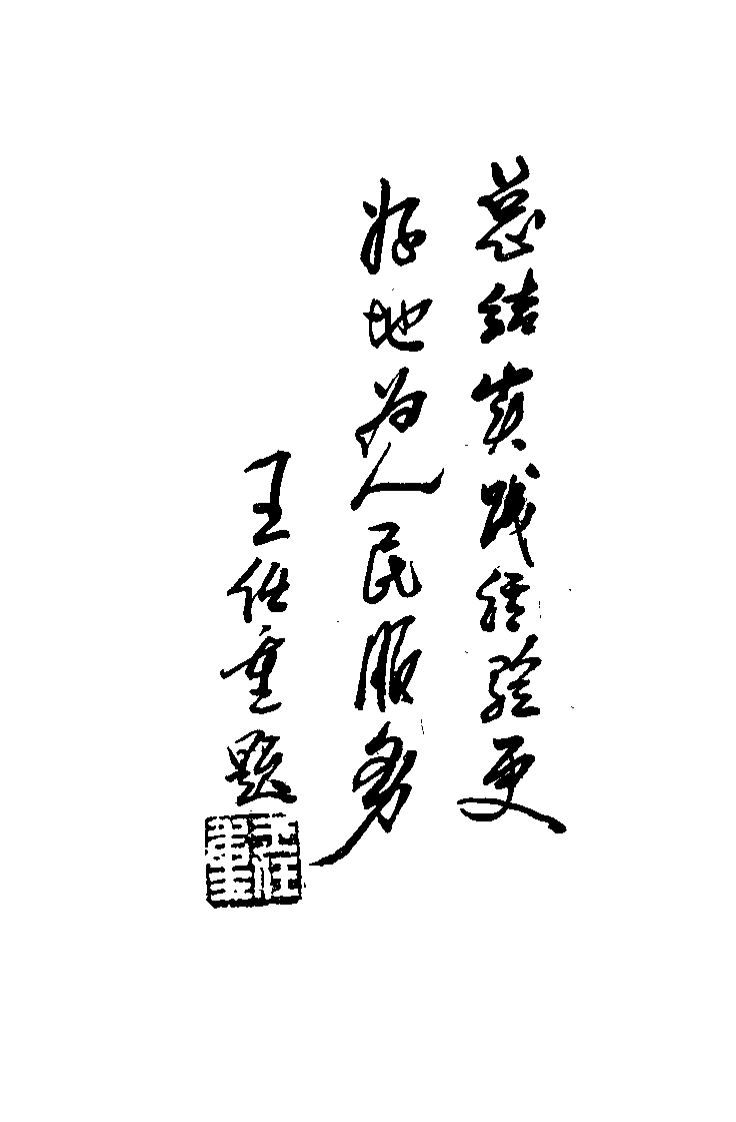 总结实践经验更
好地为人民服务
王任重题
王任重